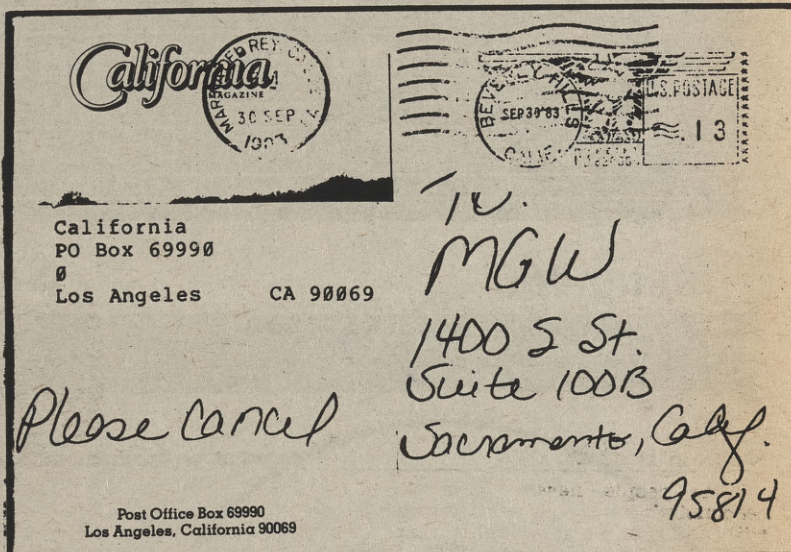 California
MAGAZINE
MAR DEL REY
30 SEP
BEVERLY HILLS
CALIF
SEP 30 '83
U.S. POSTAGE
.13
California
PO Box 69990
0
Los Angeles CA 90069
To.
MGW
1400 S St.
Suite 100B
Sacramento, Calif.
95814
Please Cancel
Post Office Box 69990
Los Angeles, California 90069